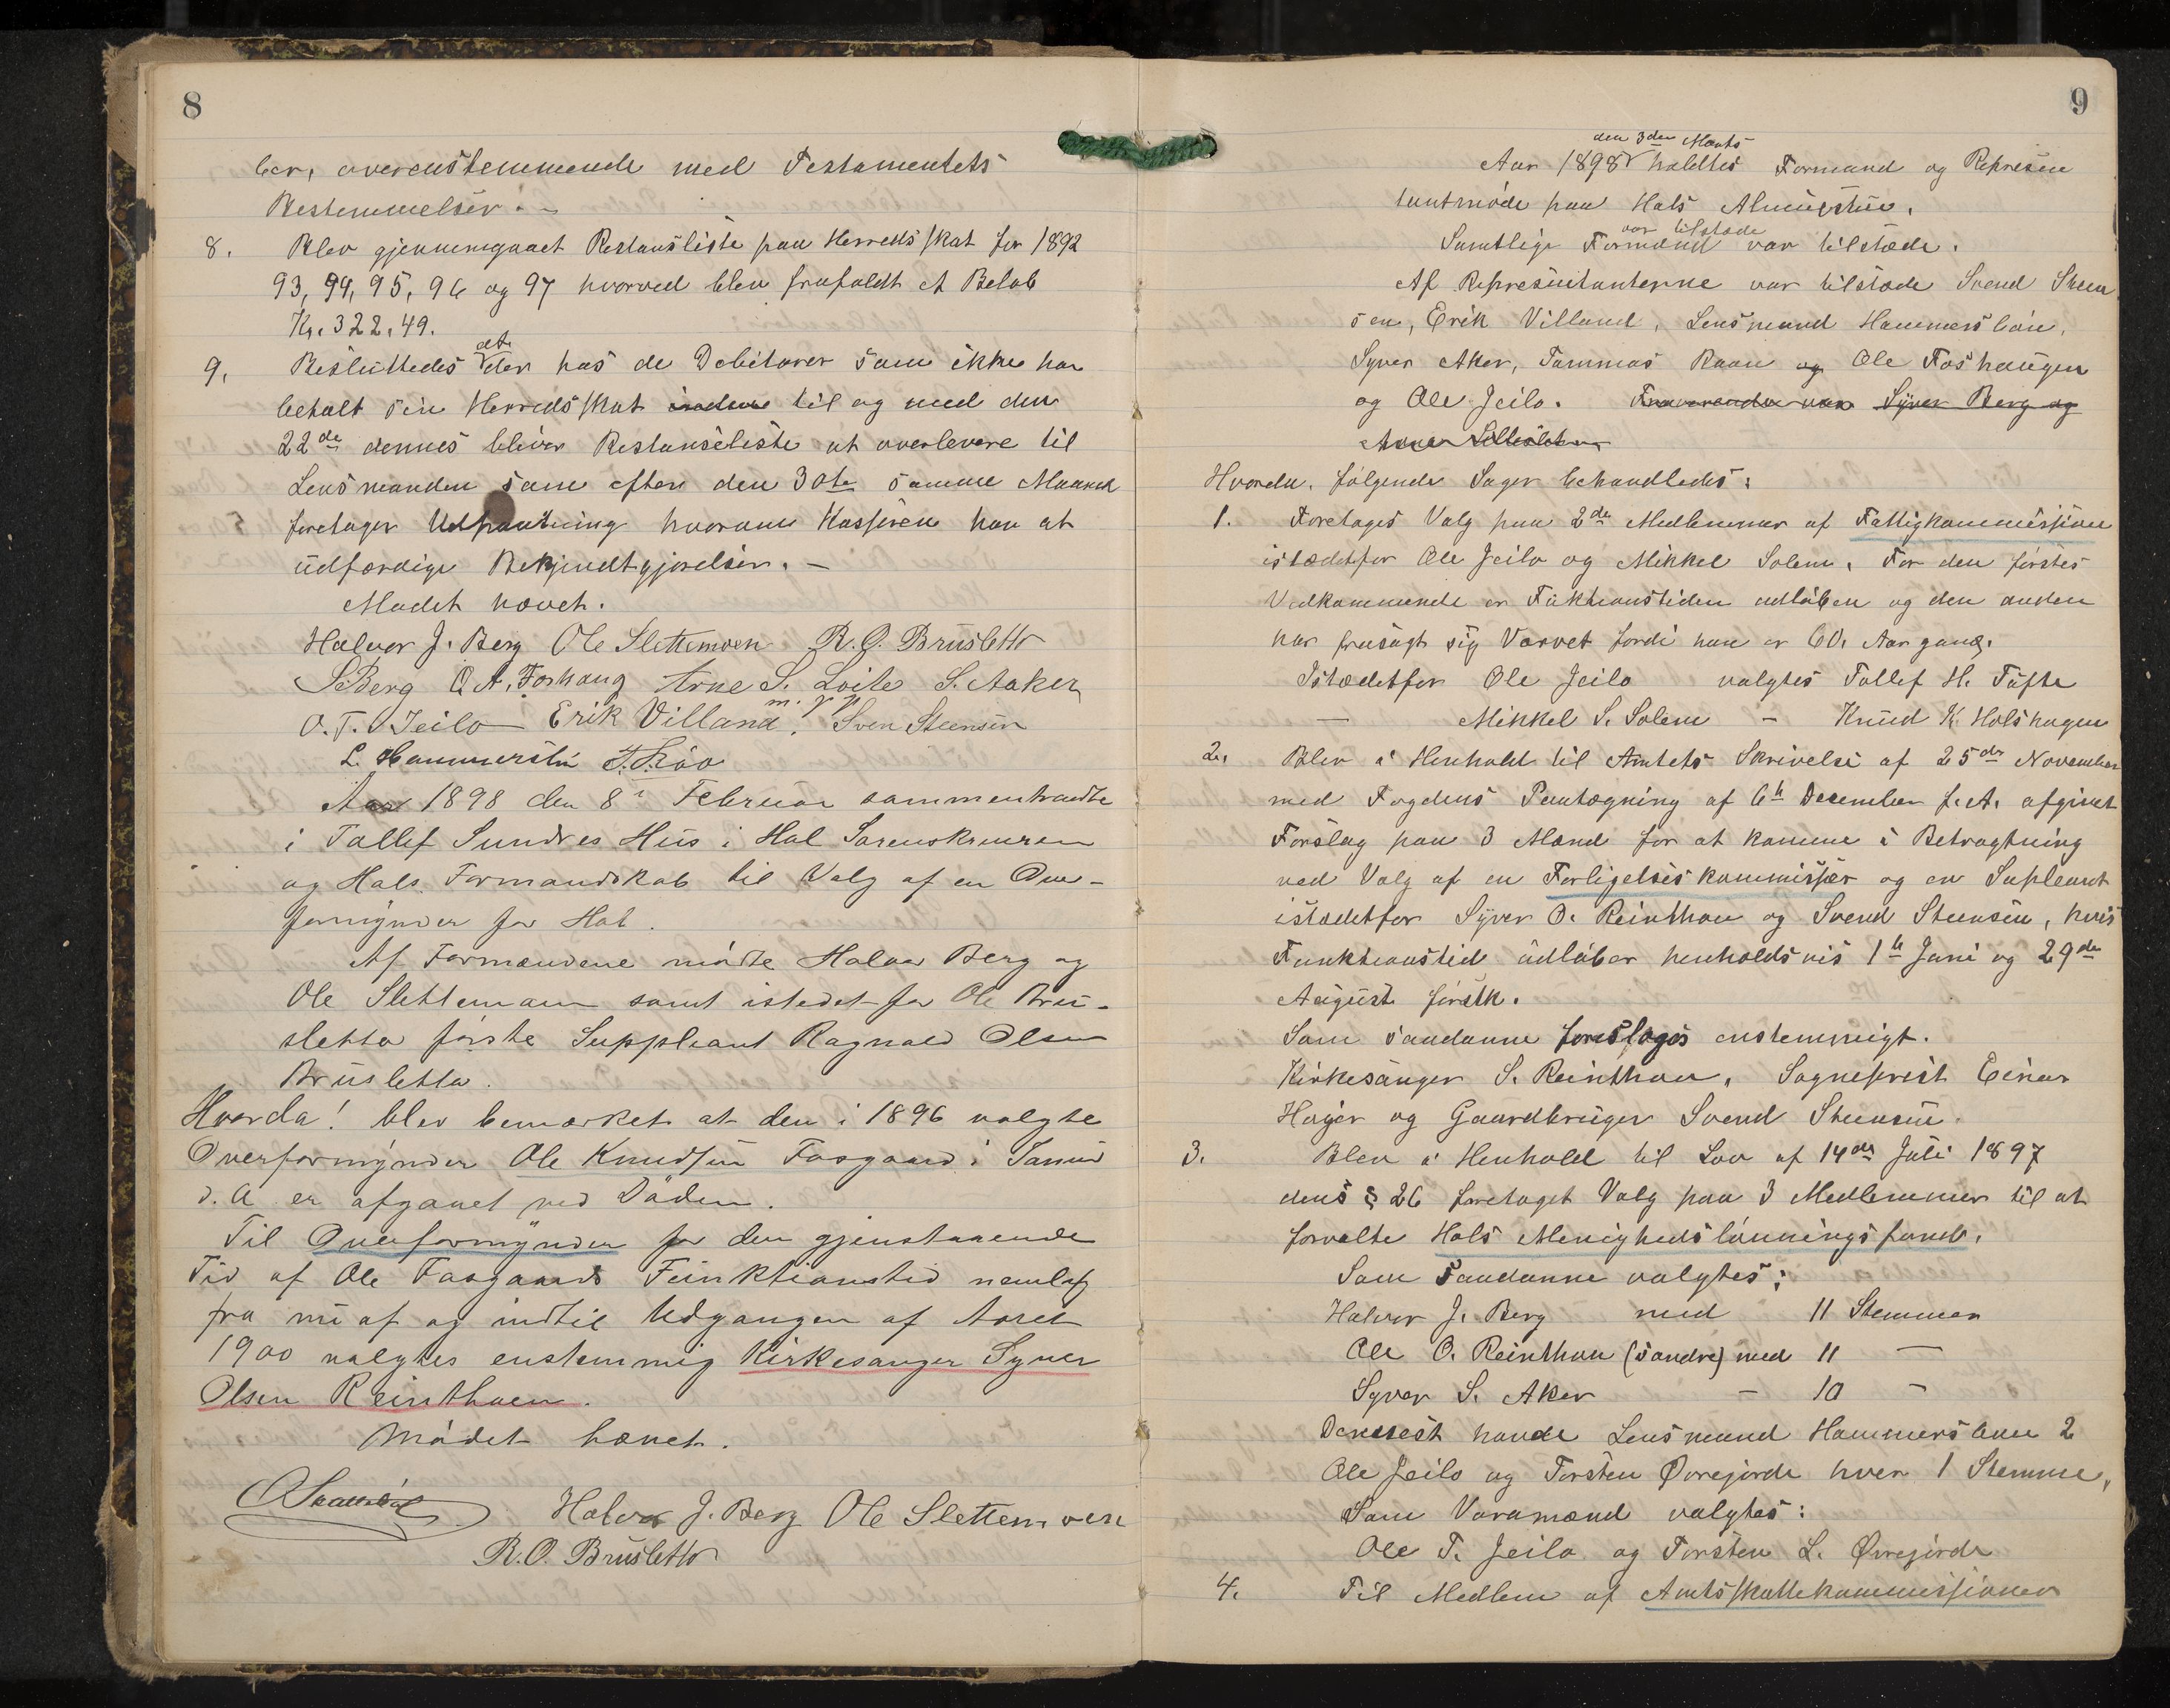 8
ber, overenstemmende med Testamentets
Bestemmelser. –
8. Blev gjennemgaaet Restanseliste paa Herredsskat for 1892
93, 94, 95, 96 og 97 hvorved blev frafaldt et Beløb
Kr. 322,49.
9. Besluttedes at der hos de Debitorer som ikke har
betalt sin Herredsskat inden til og med den
22de dennes bliver Restanseliste at overlevere til
Lensmanden som efter den 30te samme Maaned
foretager Udpantning hvorom Kasseren har at
udfærdige Bekjendtgjørelser. –
Mødet hævet.
Halvor J. Berg Ole Slettemoen R. O. Brusletto
S Berg O A. Foshaug Arne S. Loite S. Aaker
O. T. Jeilo Erik Villand m. p. p. Sven Steensen
L. Hammersbøn T. Råo
Aar 1898 den 8i Februar sammentraadte
i Tollef Sundres Hus i Hol Sorenskriveren
og Hols Formandskab til Valg af en Over-
formynder for Hol.
Af Formændene mødte Halvor Berg og
Ole Slettemoen samt istedetfor Ole Bru-
sletto første Suppleant Ragnald Olsen
Brusletto.
Hvorda! blev bemærket at den i 1896 valgte
Overformynder Ole Knudsen Fosgaard i Januar
d. A er afgaaet ved Døden.
Til Overformynder for den gjenstaaende
Tid af Ole Fosgaards Funktionstid nemlig
fra nu af og indtil Udgangen af Aaret
1900 valgtes enstemmig Kirkesanger Syver
Olsen Reinthoen.
Mødet hævet.
Halvor J. Berg Ole Slettemoen
R. O. Brusletto
9
den 3den Marts
Aar 1898 holdtes Formand og Repræsen
tantmøde paa Hols Almuestue.
var tilstæde
Samtlige Formænd var tilstæde.
Af Repræsentanterne var tilstæde Svend Steen
sen, Erik Villand, Lensmand Hammersbøn,
Syver Aker, Tommas Raan og Ole Foshaugen
og Ole Jeilo. Fraværende var Syver Berg og
Hvorda, følgende Sager behandledes:
1. Foretages Valg paa 2de Medlemmer af Fattigkommissjonen
istædetfor Ole Jeilo og Mikkel Solem. For den førstes
Vedkommende er Funktionstiden udløben og den anden
har frasagt sig Vervet fordi han er 60. Aar gaml.
Istædetfor Ole Jeilo valgtes Tollef H. Tufte
— Mikkel S. Solem – Knud K. Holshagen
2. Blev i Henhold til Amtets Skrivelse af 25de November
med Fogdens Paategning af 6te December f. A. afgivet
Forslag paa 3 Mænd for at komme i Betragtning
ved Valg af en Forligelseskommissær og en Supleant
istædetfor Syver O. Reinthon og Svend Steensen, hvis
Funktionstid udløber henholdsvis 1te Juni og 29de
August førstk.
Som saadanne foreslages enstemmigt.
Kirkesanger S. Reinthon, Sogneprest Einar
Høyer og Gaardbruger Svend Steensen.
3. Blev i Henhold til Lov af 14de Juli 1897
dens § 26 foretaget Valg paa 3 Medlemmer til at
forvalte Hols Menighedslønningsfond.
Som saadanne valgtes:
Halvor J. Berg med 11 Stemmer
Ole O. Reinthon (søndre) med 11 —
Syver S. Aker – 10 –
Dernest havde Lensmand Hammersbøen 2
Ole Jeilo og Torsten Øvrejorde hver 1 Stemme,
Som Varamænd valgtes:
Ole T. Jeilo og Torsten L. Øvrejorde
4. Til Medlem af Amtsskattekommissionen